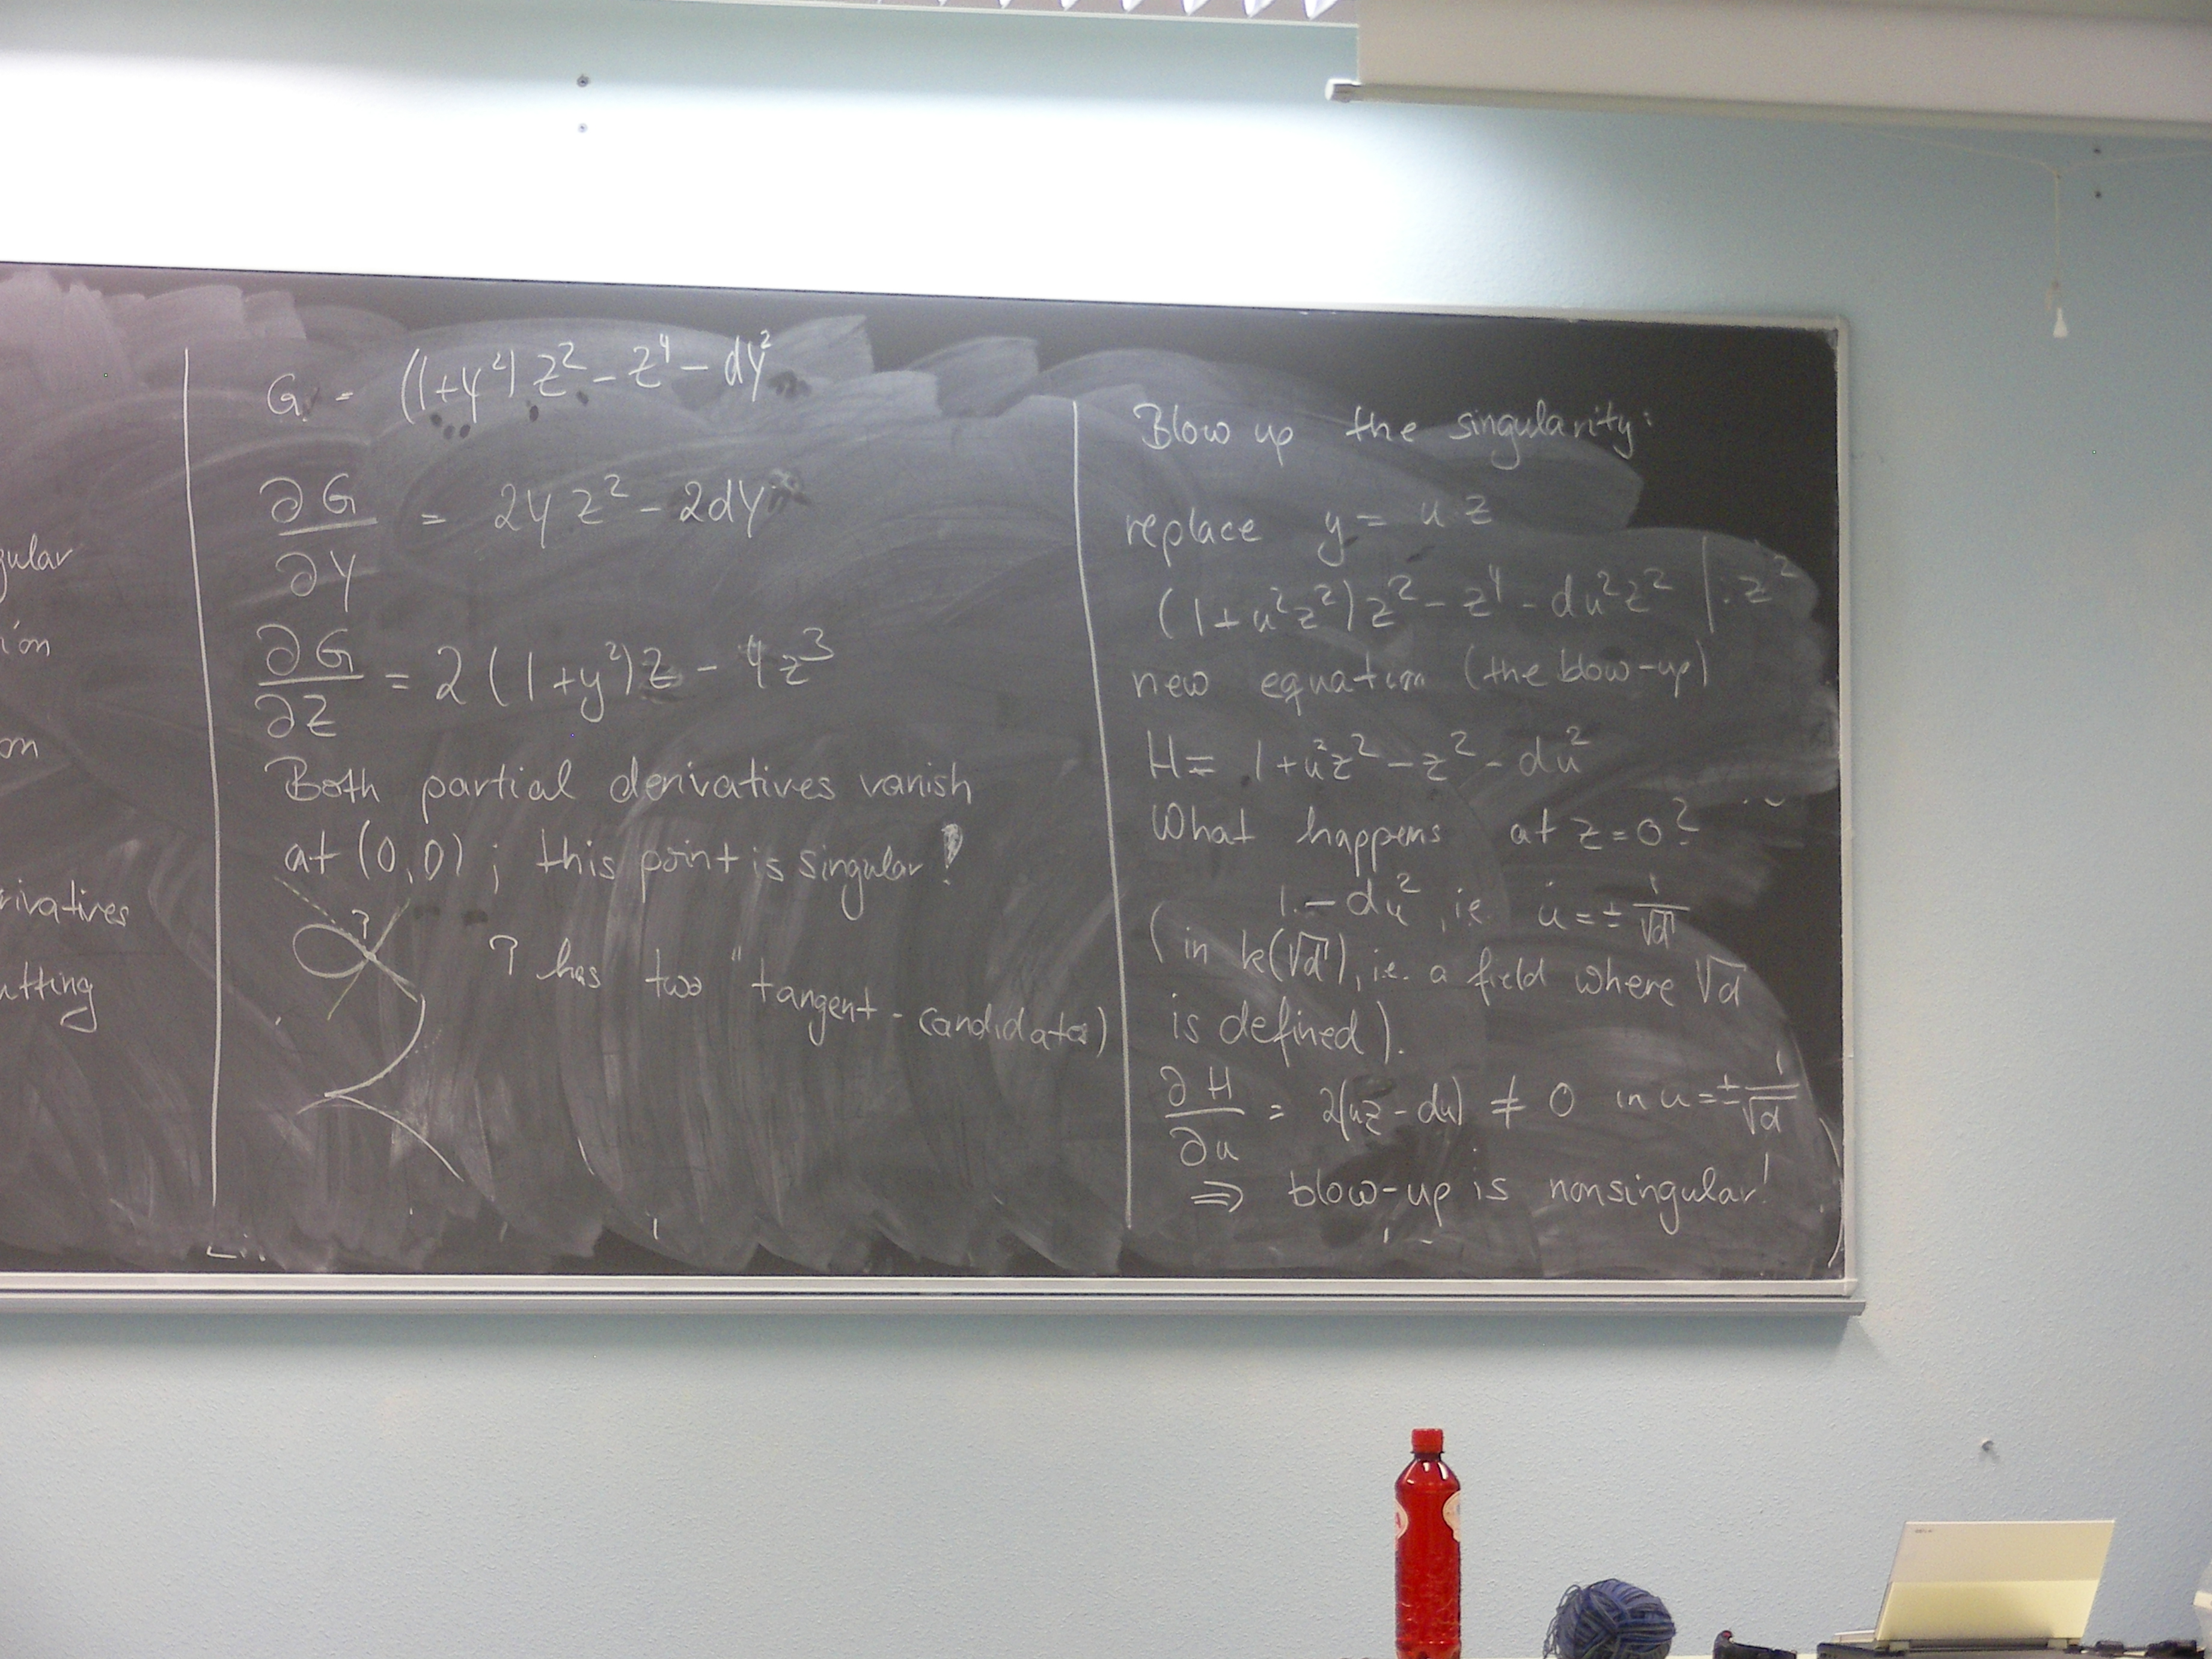 gular
ion
on
rivatives
utting
G = (1+y²) z² - z⁴ - dy²
∂G/∂y = 2yz² - 2dy
∂G/∂z = 2(1+y²)z - 4z³
Both partial derivatives vanish
at (0,0); this point is singular!
?
? has two "tangent-candidates)
Blow up the singularity:
replace y = uz
(1+u²z²)z² - z⁴ - du²z² |:z²
new equation (the blow-up)
H = 1+u²z² - z² - du²
What happens at z=0?
1 - du², i.e. u = ± 1/√d
(in k(√d), i.e. a field where √d
is defined).
∂H/∂u = 2(uz - du) ≠ 0 in u = ± 1/√d
⇒ blow-up is nonsingular!